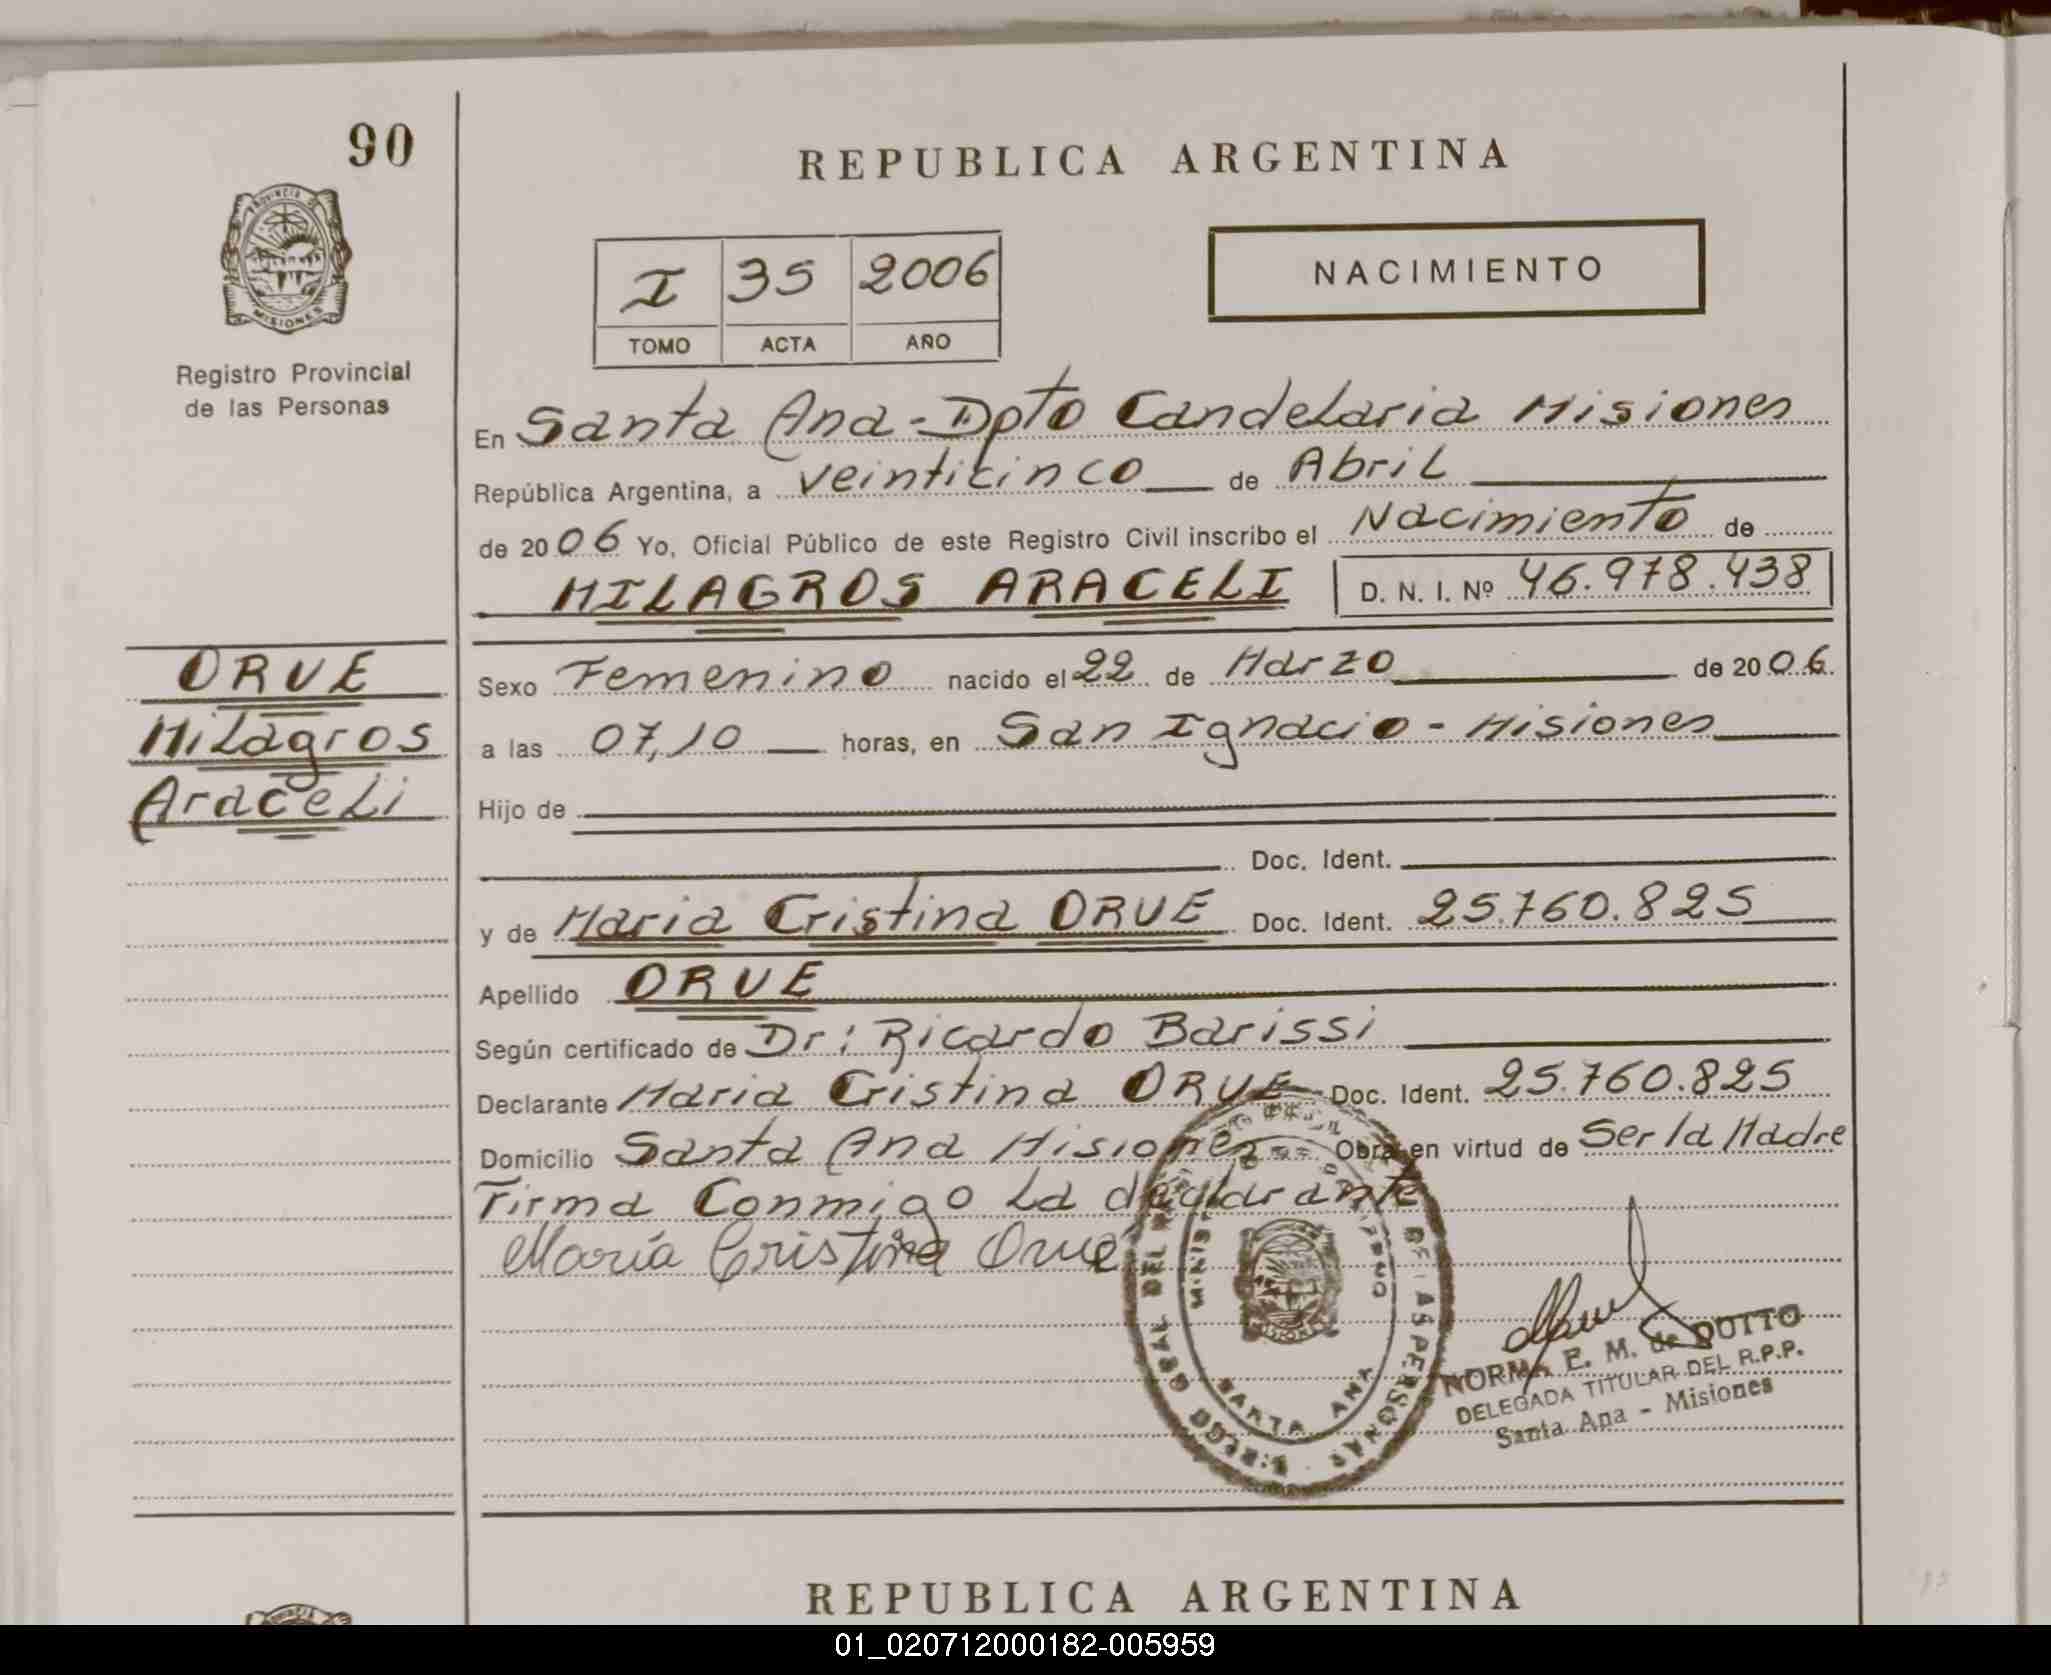 90
REPUBLICA ARGENTINA
PROVINCIA DE
MISIONES
Registro Provincial
de las Personas
I 35 2006
TOMO ACTA AÑO
NACIMIENTO
En Santa Ana - Dpto Candelaria Misiones
República Argentina, a veinticinco de Abril
de 2006 Yo, Oficial Público de este Registro Civil inscribo el Nacimiento de
MILAGROS ARACELI D. N. I. Nº 46.978.438
ORUE
Milagros
Araceli
Sexo Femenino nacido el 22 de Marzo de 2006.
a las 07,10 horas, en San Ignacio - Misiones
Hijo de
Doc. Ident.
y de Maria Cristina ORUE Doc. Ident. 25.760.825
Apellido ORUE
Según certificado de Dr: Ricardo Barissi
Declarante Maria Cristina ORUE Doc. Ident. 25.760.825
Domicilio Santa Ana Misiones Obra en virtud de Ser la Madre
Firma Conmigo la declarante
María Cristina Orue
SANTA ANA
NORMA E. M. de DOTTO
DELEGADA TITULAR DEL R.P.P.
Santa Ana - Misiones
REPUBLICA ARGENTINA
01_020712000182-005959